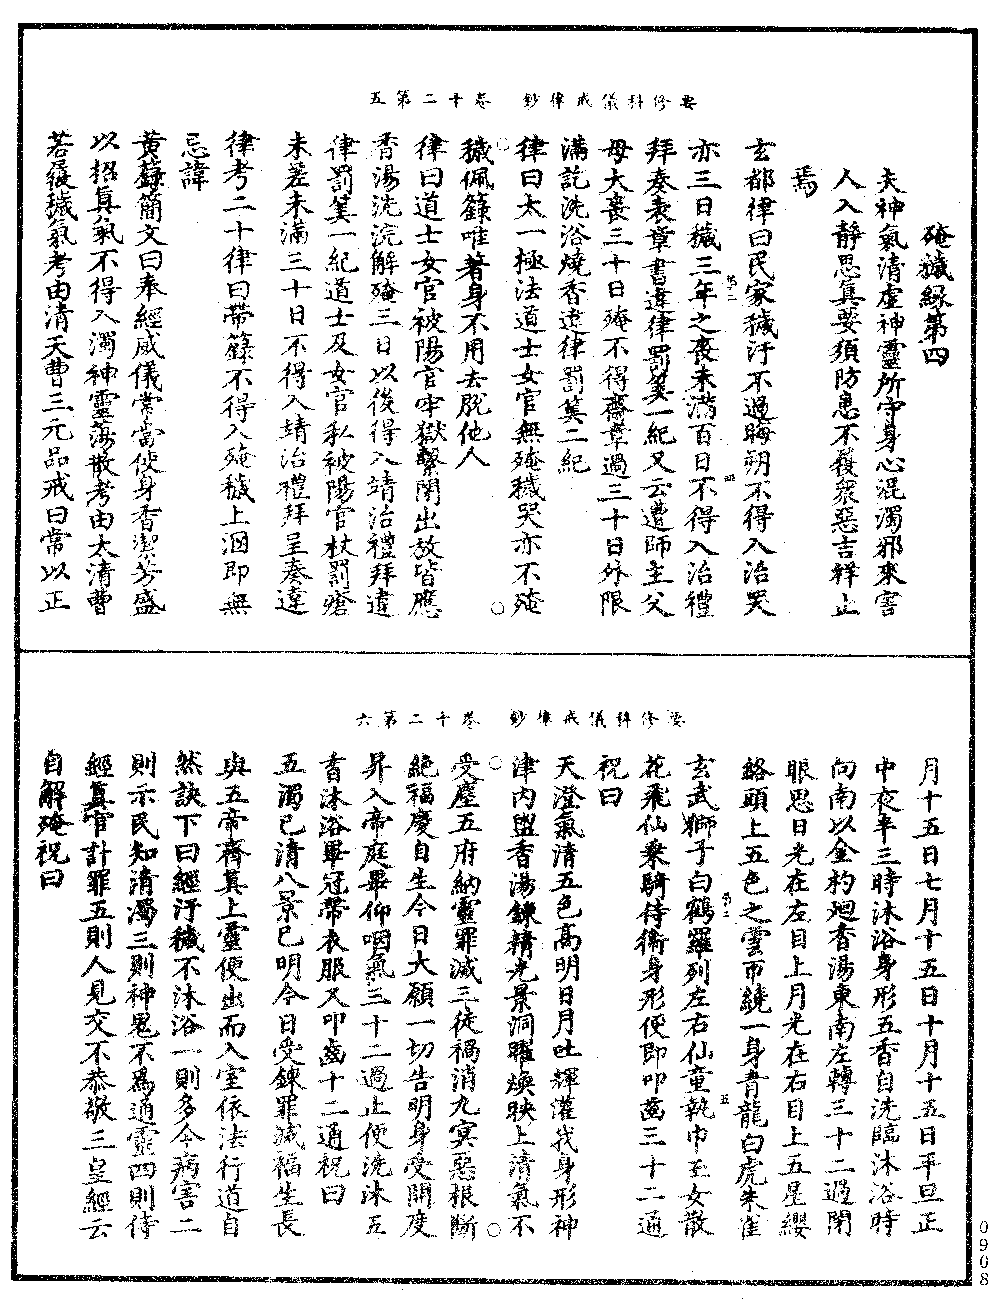 要修科儀戒律鈔　卷十二第五
殗穢緣第四
夫神氣清虛神靈所守身心混濁邪來害
人入靜思真要須防患不穫衆惡吉祥止
焉
玄都律曰民家穢汙不過晦朔不得入治哭
亦三日穢三年之喪未滿百日不得入治禮
拜奏表章書違律罰筭一紀又云遭師主父
母大喪三十日殗不得齋章過三十日外限
滿訖洗浴燒香違律罰筭二紀
律曰太一極法道士女官無殗穢哭亦不殗
穢佩籙唯著身不用去脫他人
律曰道士女官被陽官牢獄繫閉出放皆應
香湯洗浣解殗三日以後得入靖治禮拜違
律罰筭一紀道士及女官私被陽官杖罰瘡
未差未滿三十日不得入靖治禮拜呈奏違
律考二十律曰帶籙不得入殗穢上溷即無
忌諱
黃籙簡文曰奉經威儀常當使身香潔芳盛
以招真氣不得入濁神靈蕩散考由太清曹
若履穢氣考由清天曹三元品戒曰常以正
要修科儀戒律鈔　卷十二第六
月十五日七月十五日十月十五日平旦正
中夜半三時沐浴身形五香自洗臨沐浴時
向南以金杓迴香湯東南左轉三十二過閉
眼思日光在左目上月光在右目上五星纓
絡頭上五色之雲帀繞一身青龍白虎朱雀
玄武獅子白鶴羅列左右仙童執巾玉女散
花飛仙乘騎侍衞身形便即叩齒三十二通
祝曰
天澄氣清五色高明日月吐輝灌我身形神
津內盥香湯鍊精光景洞曜煥映上清氣不
受塵五府納靈罪滅三徒禍消九冥惡根斷
絕福慶自生今日大願一切告明身受開度
昇入帝庭畢仰咽氣三十二過止便洗沐五
香沐浴畢冠帶衣服又叩齒十二通祝曰
五濁已清八景已明今日受鍊罪滅福生長
與五帝齊真上靈便出而入室依法行道自
然訣下曰經汙穢不沐浴一則多令病害二
則示民知清濁三則神鬼不爲通靈四則侍
經真官計罪五則人見交不恭敬三皇經云
自解殗祝曰
0908